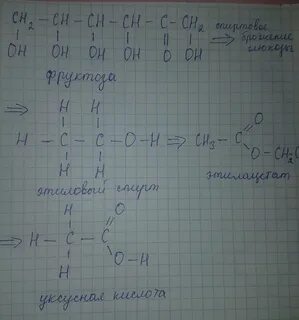 CH₂ – CH – CH – CH – C – CH₂ спиртовое
OH OH OH OH O OH брожение
глюкозы
фруктоза
H H
H – C – C – O – H ⇒ CH₃ – C
O
O – CH₂
H H
этиловый спирт
этилацетат
H
O
⇒ H – C – C
O – H
H
уксусная кислота